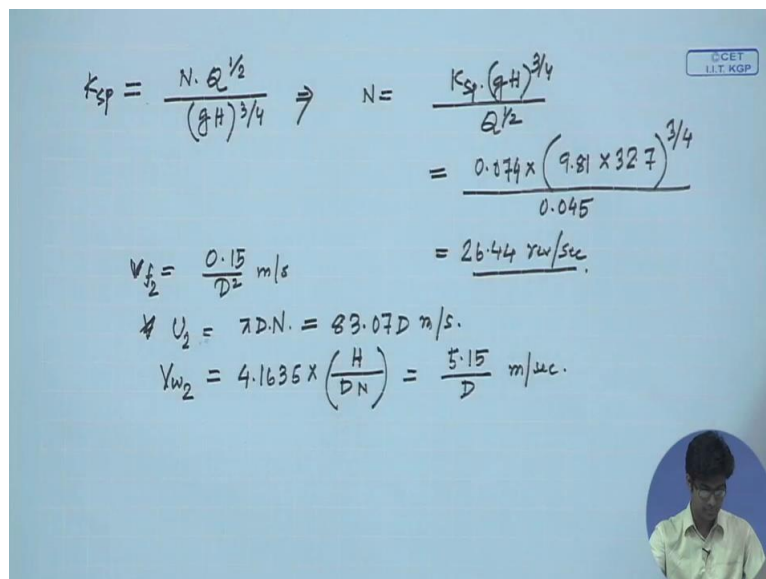 ©CET
I.I.T. KGP
Ksp = N. Q^1/2 / (gH)^3/4 ⇒ N = Ksp. (gH)^3/4 / Q^1/2
= 0.074 × (9.81 × 32.7)^3/4 / 0.045
= 26.44 rev/sec.
Vf2 = 0.15 / D^2 m/s
U2 = πD.N. = 83.07D m/s.
Vw2 = 4.1635 × (H / DN) = 5.15 / D m/sec.